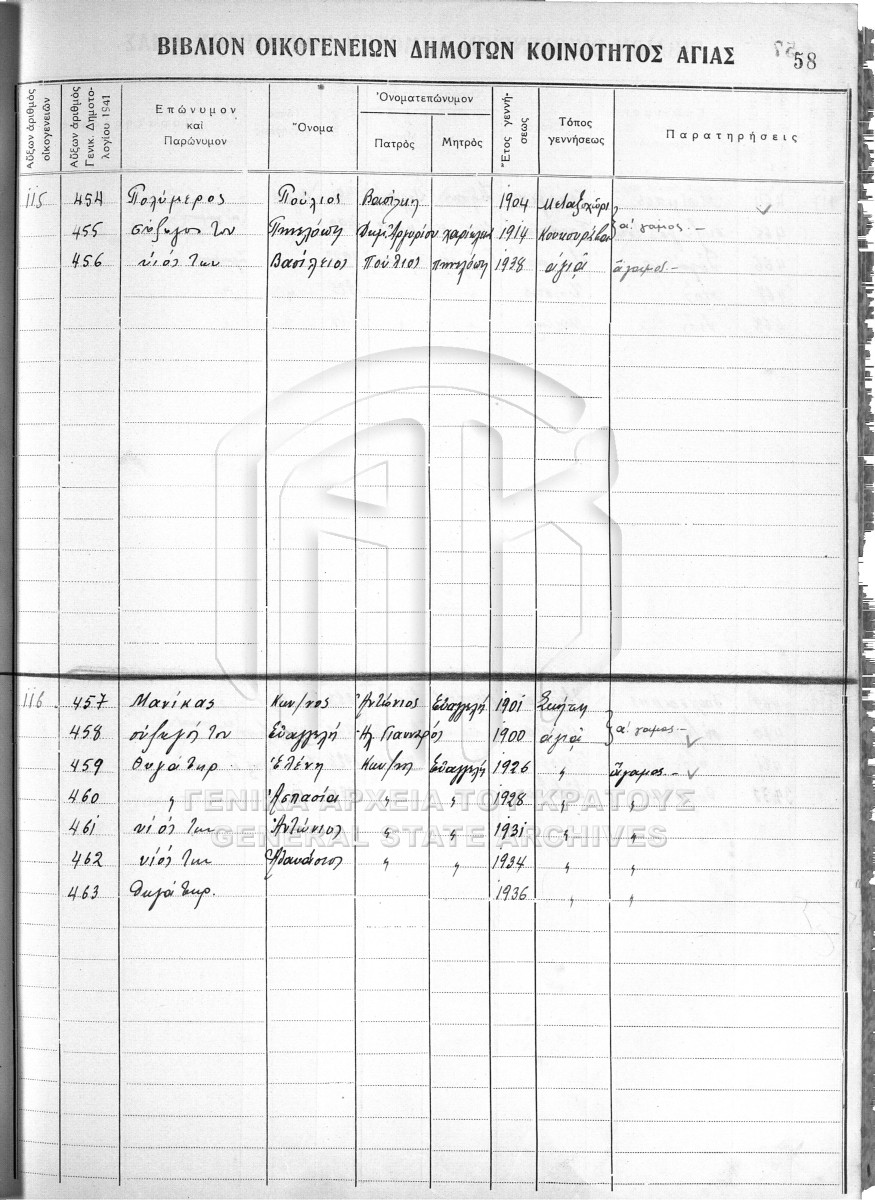 ΒΙΒΛΙΟΝ ΟΙΚΟΓΕΝΕΙΩΝ ΔΗΜΟΤΩΝ ΚΟΙΝΟΤΗΤΟΣ ΑΓΙΑΣ
58
Αὔξων ἀριθμὸς οἰκογενειῶν
Αὔξων ἀριθμὸς Γενικ. Δημοτολογίου 1941
Ἐπώνυμον καὶ Παρώνυμον
Ὄνομα
Ὀνοματεπώνυμον
Πατρὸς
Μητρὸς
Ἔτος γεννήσεως
Τόπος γεννήσεως
Παρατηρήσεις
115 454 Πολύμερος Πούλιος Βασίλης 1904 Μεταξοχώρι
455 σύζυγος του Πηνελόπη Δημ. Ἀργυρίου 1914 α' γαμος -
456 υἱός των Βασίλειος Πούλιος Πηνελόπη 1938 ἁγιᾶ ἄγαμος -
116 457 Μανίκας Κων/νος Ἀντώνιος Εὐαγγελή 1901 Σκήτη
458 σύζυγός του Εὐαγγελή Ἠλ. 1900 ἁγιᾶ α' γαμος -
459 Θυγάτηρ Ἑλένη Κων/νος Εὐαγγελή 1926 " ἄγαμος -
460 " Ἀσπασία " " 1928 " "
461 υἱός των Ἀντώνιος " " 1931 " "
462 υἱός των Ἀθανάσιος " " 1934 " "
463 Θυγάτηρ. 1936 " "
ΓΕΝΙΚΑ ΑΡΧΕΙΑ ΤΟΥ ΚΡΑΤΟΥΣ
GENERAL STATE ARCHIVES